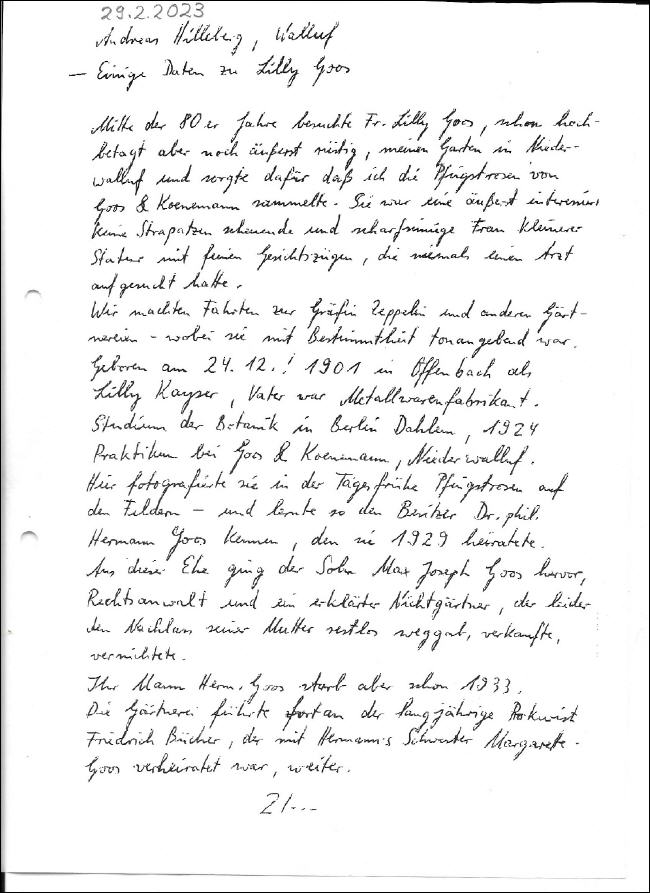 29.2.2023
Andreas Hilleberg, Walluf
— Einige Daten zu Lilly Goos
Mitte der 80er Jahre besuchte Fr. Lilly Goos, schon hoch-
betagt aber noch äußerst rüstig, meinen Garten in Nieder-
walluf und sorgte dafür daß ich die Pfingstrosen von
Goos & Koenemann sammelte. Sie war eine äußerst interessierte
keine Strapatzen scheuende und scharfsinnige Frau kleinerer
Statur mit feinen Gesichtszügen, die niemals einen Arzt
aufgesucht hatte.
Wir machten Fahrten zur Gräfin Zeppelin und anderen Gärt-
nereien - wobei sie mit Bestimmtheit tonangebend war.
Geboren am 24.12.! 1901 in Offenbach als
Lilly Kayser, Vater war Metallwarenfabrikant.
Studium der Botanik in Berlin Dahlem, 1924
Praktikum bei Goos & Koenemann, Niederwalluf.
Hier fotografierte sie in der Tagesfrühe Pfingstrosen auf
den Feldern — und lernte so den Besitzer Dr. phil.
Hermann Goos kennen, den sie 1929 heiratete.
Aus dieser Ehe ging der Sohn Max Joseph Goos hervor,
Rechtsanwalt und ein erklärter Nichtgärtner, der leider
den Nachlass seiner Mutter restlos weggab, verkaufte,
vernichtete.
Ihr Mann Herm. Goos starb aber schon 1933.
Die Gärtnerei führte fortan der langjährige Prokurist
Friedrich Bücher, der mit Hermann's Schwester Margarethe-
Goos verheiratet war, weiter.
2/...